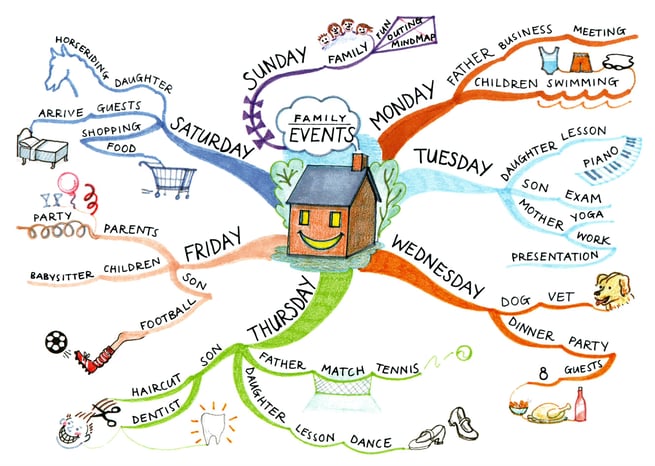 FAMILY
EVENTS
SUNDAY
FAMILY
FUN
OUTING
MINDMAP
MONDAY
FATHER BUSINESS MEETING
CHILDREN SWIMMING
TUESDAY
DAUGHTER LESSON
PIANO
SON EXAM
MOTHER YOGA
WORK
PRESENTATION
WEDNESDAY
DOG VET
DINNER PARTY
8 GUESTS
THURSDAY
FATHER MATCH TENNIS
DAUGHTER LESSON DANCE
SON
HAIRCUT
DENTIST
FRIDAY
PARENTS
PARTY
CHILDREN
BABYSITTER
SON
FOOTBALL
SATURDAY
DAUGHTER
HORSERIDING
GUESTS
ARRIVE
SHOPPING
FOOD